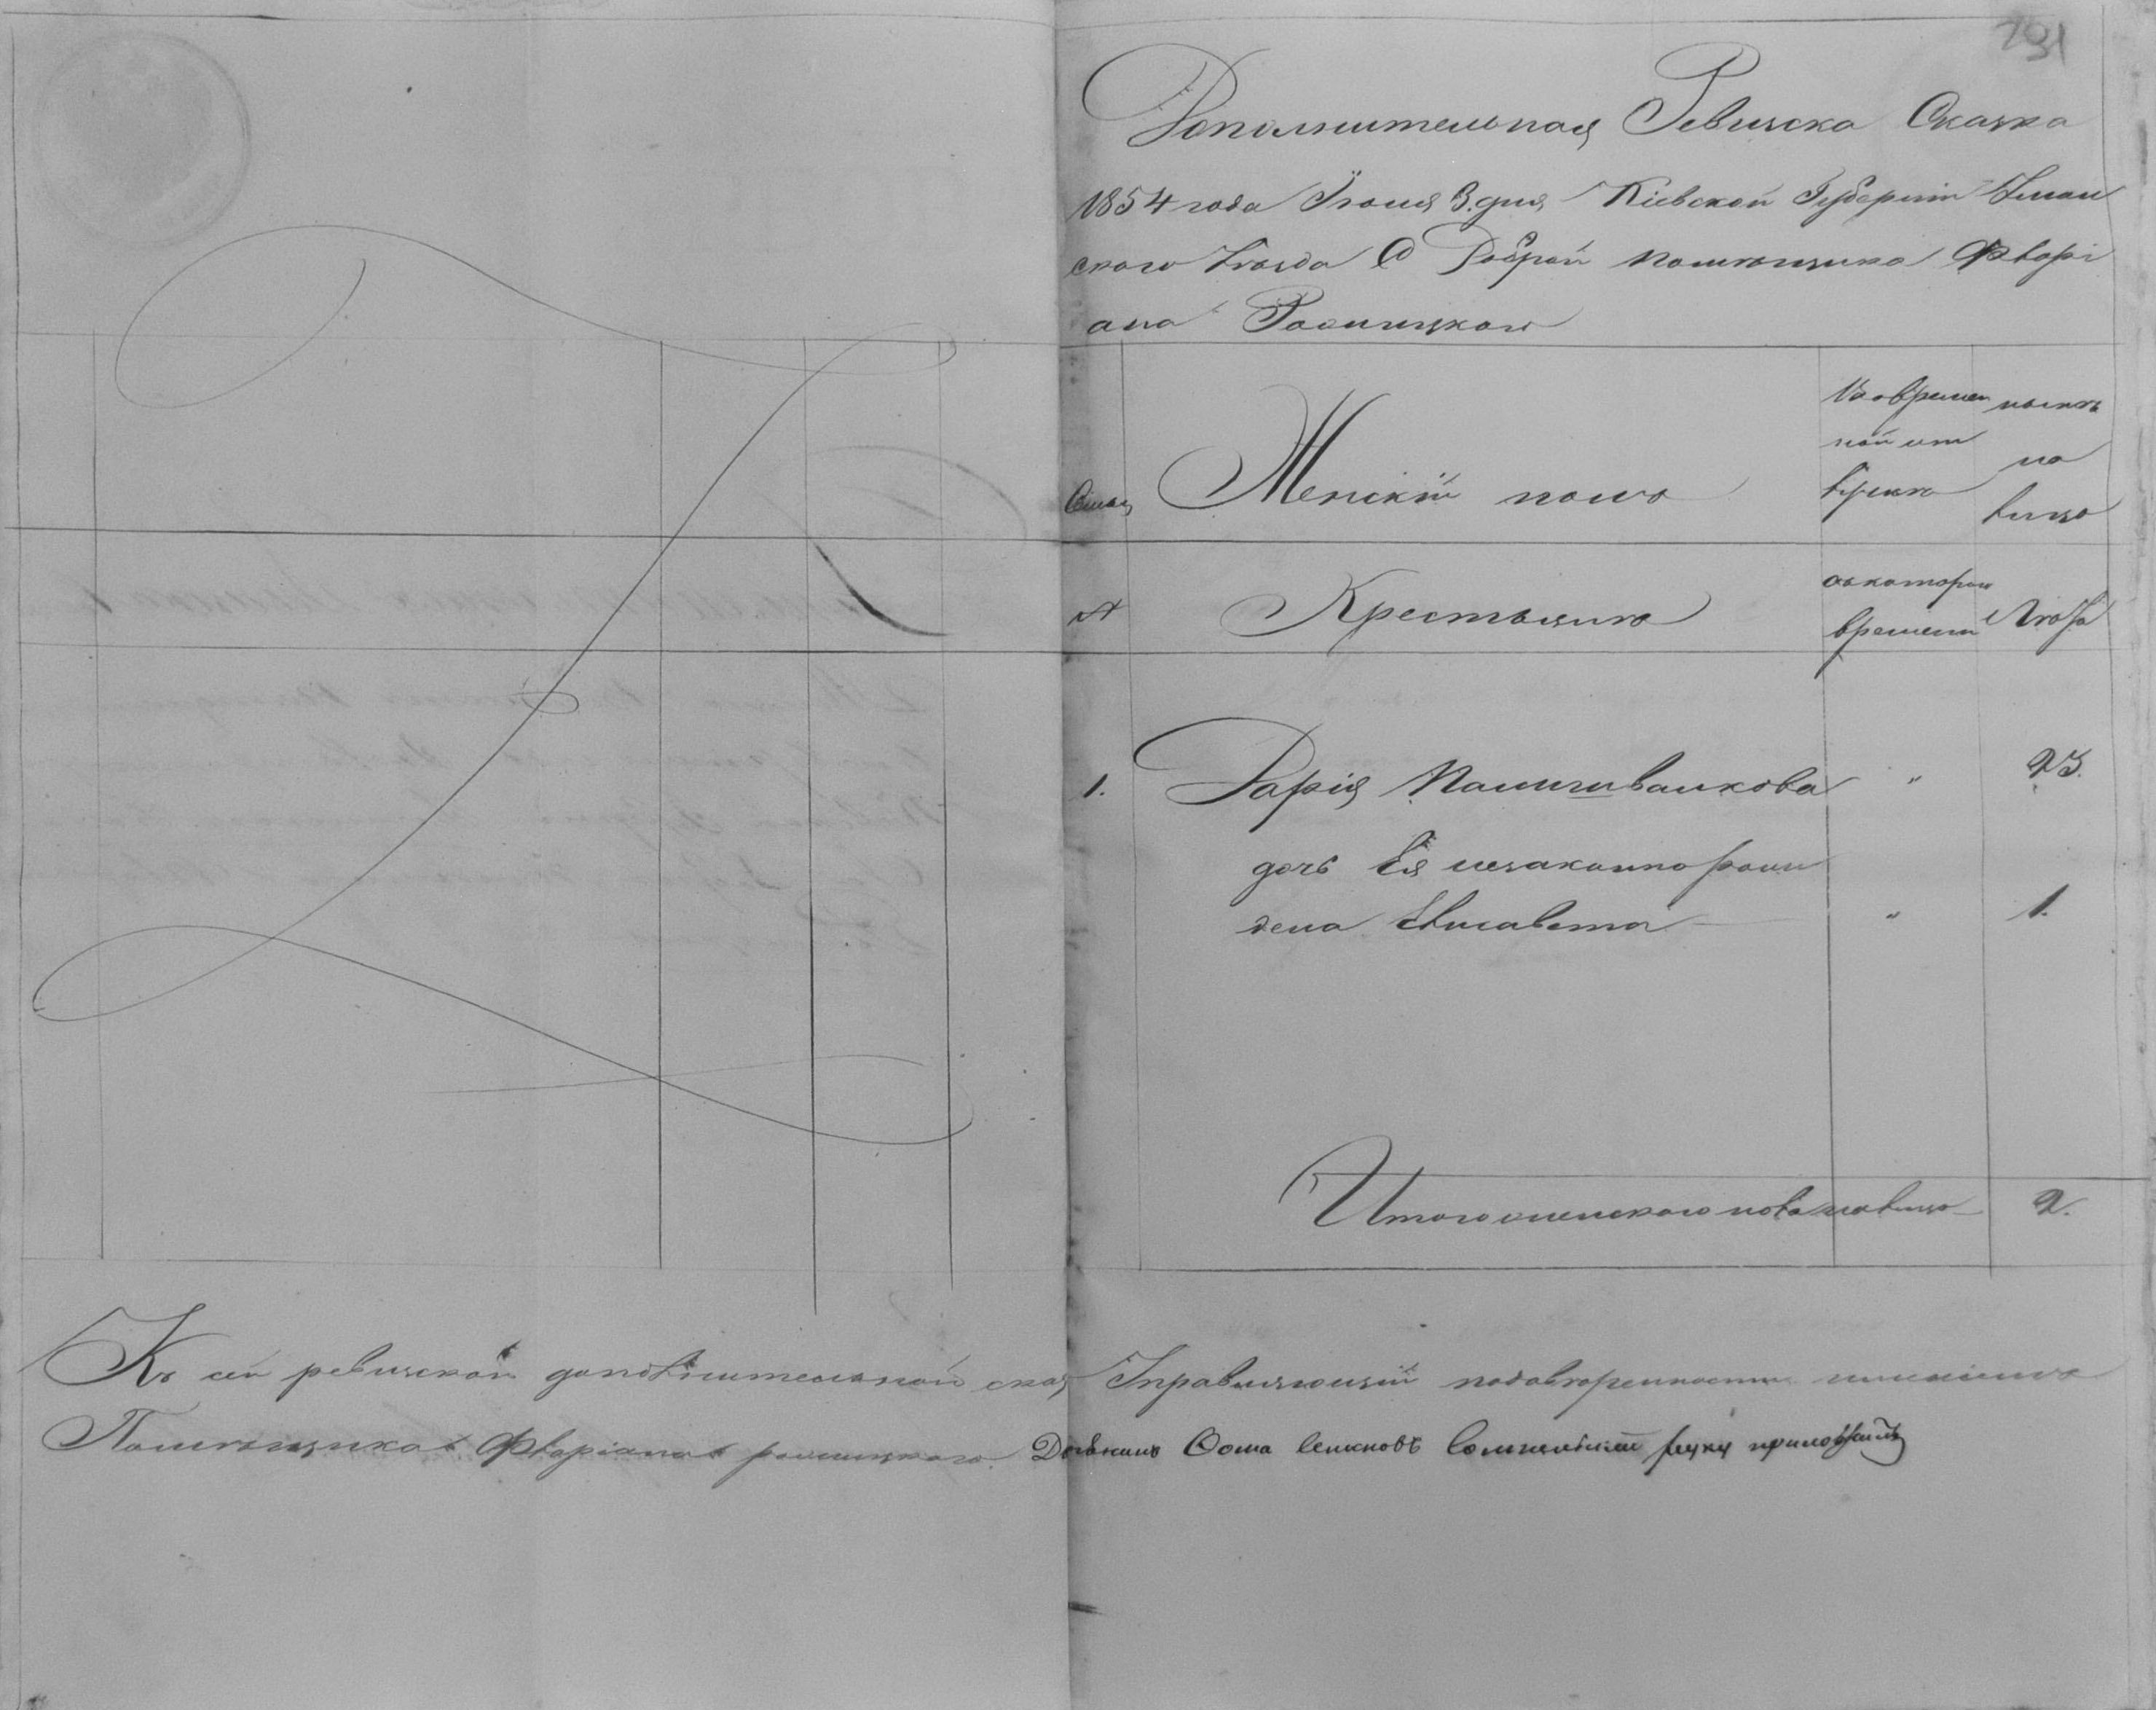 791
Дополнительная Ревизска Сказка
1854 года Іюня 3. дня Кіевской Губерніи Уман
ского Уезда С Доброй помѣщика Флорі
ана Росцишского
Семьи
Женскій полъ
Во времен
ной от
лучке
нынѣ
на
лицо
№
Крестьянъ
съ котораго
времени
Лѣта
1.
Дарія Палишвалкова
"
23.
дочь Ея незаконно рож
дена Елисавета
"
1.
Итого женского пола на лицо
2.
Къ сей ревизской дополнительной сказ Управляющій по доверенности имѣніемъ
Помѣщика Флоріана Дворянинъ Фома руку приложилъ